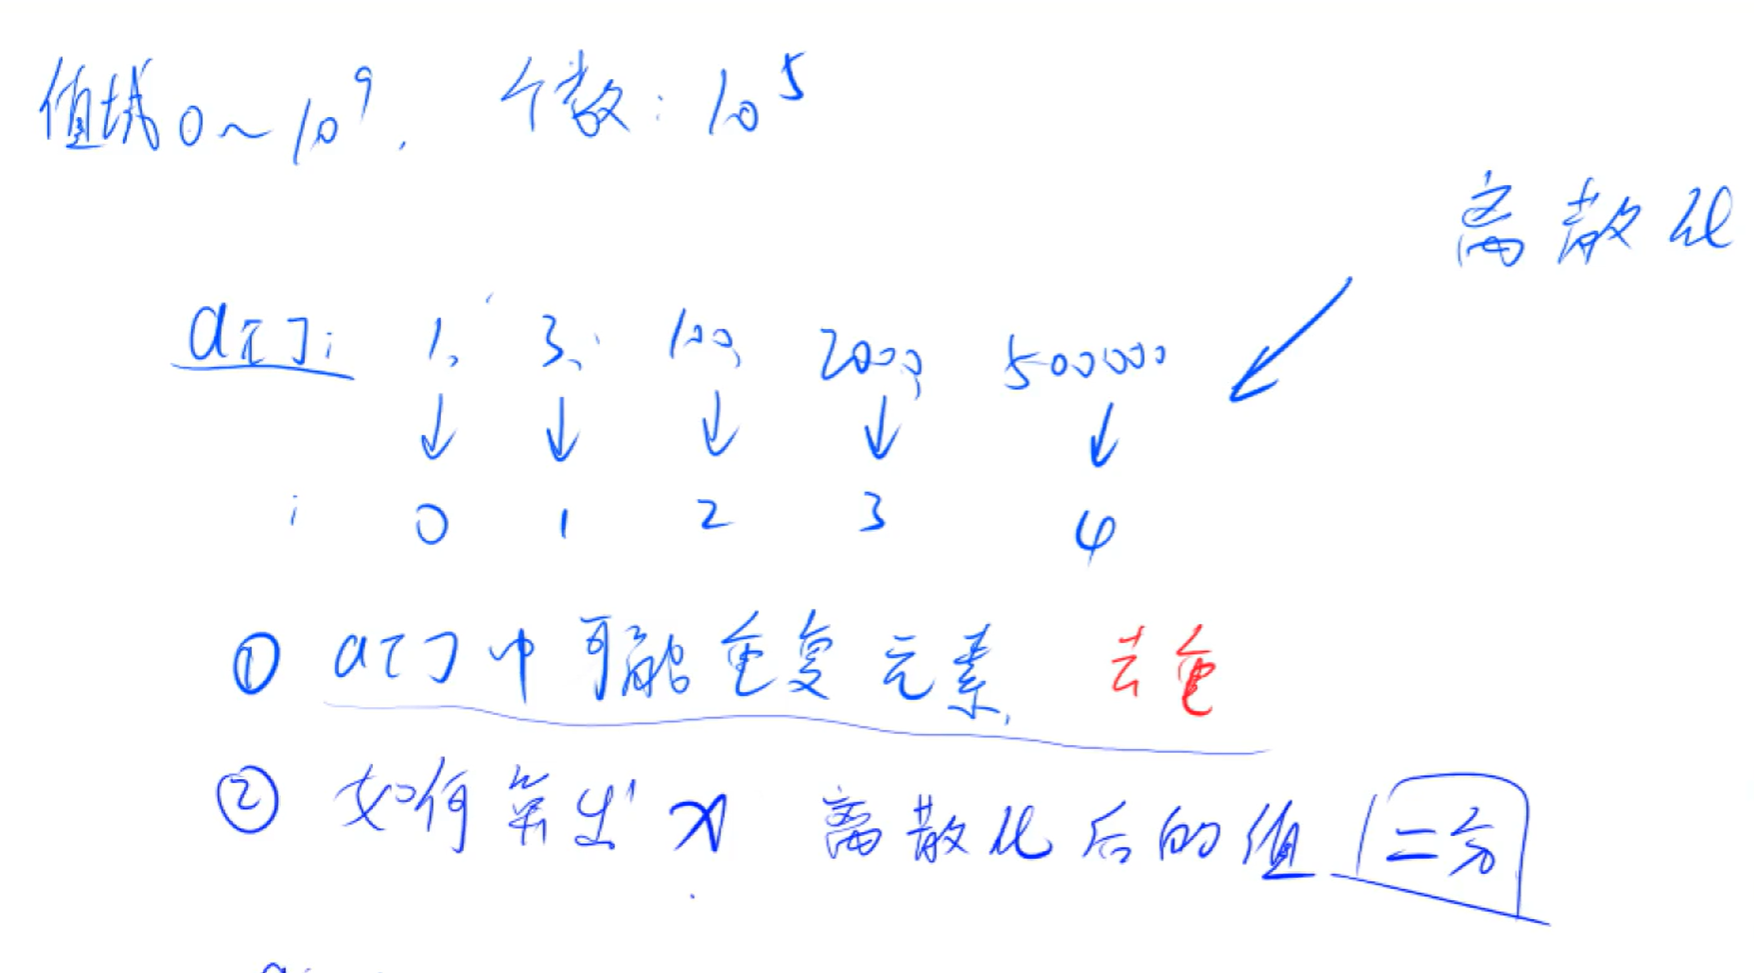 值域 0~10^9, 个数: 10^5
离散化
a[]: 1, 3, 100, 2000, 500000
i 0 1 2 3 4
① a[] 中可能重复元素, 去重
② 如何算出 x 离散化后的值 二分